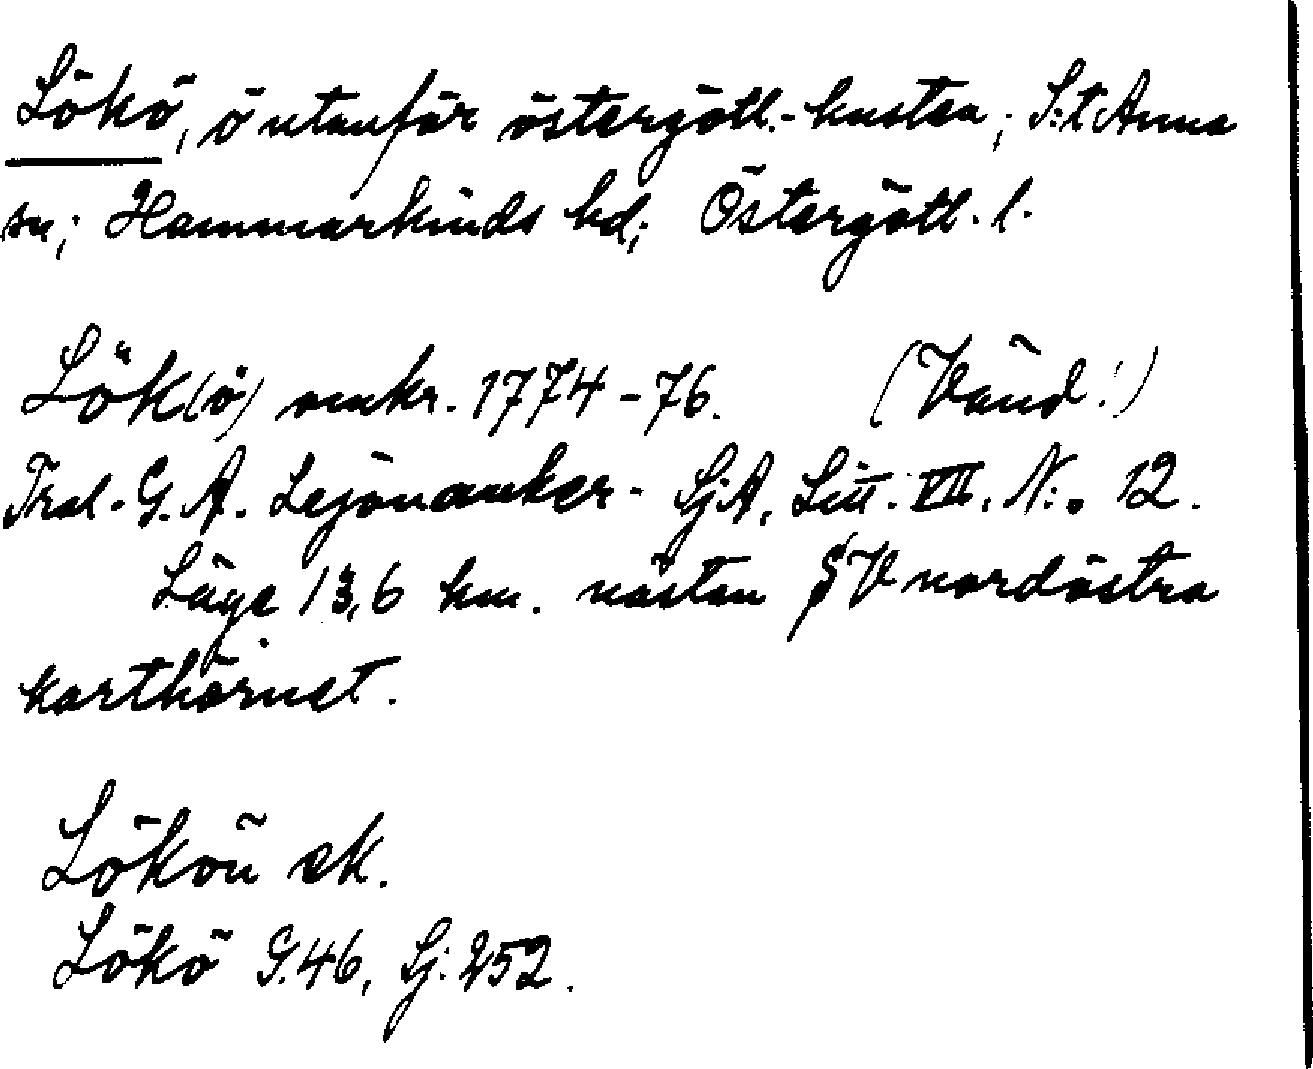 Lökö, ö utanför östergötl.-kusten; S:t Anna
sn; Hammarkinds hd; Östergötl. l.
Lök(ö) omkr. 1774-76. (Vänd!)
Fral. G. A. Lejonanker. SjA, Litt. VII. N:o 12.
Läge 13,6 km. nästan SV nordöstra
karthörnet.
Lökön ek.
Lökö G.46, Sj. 252.